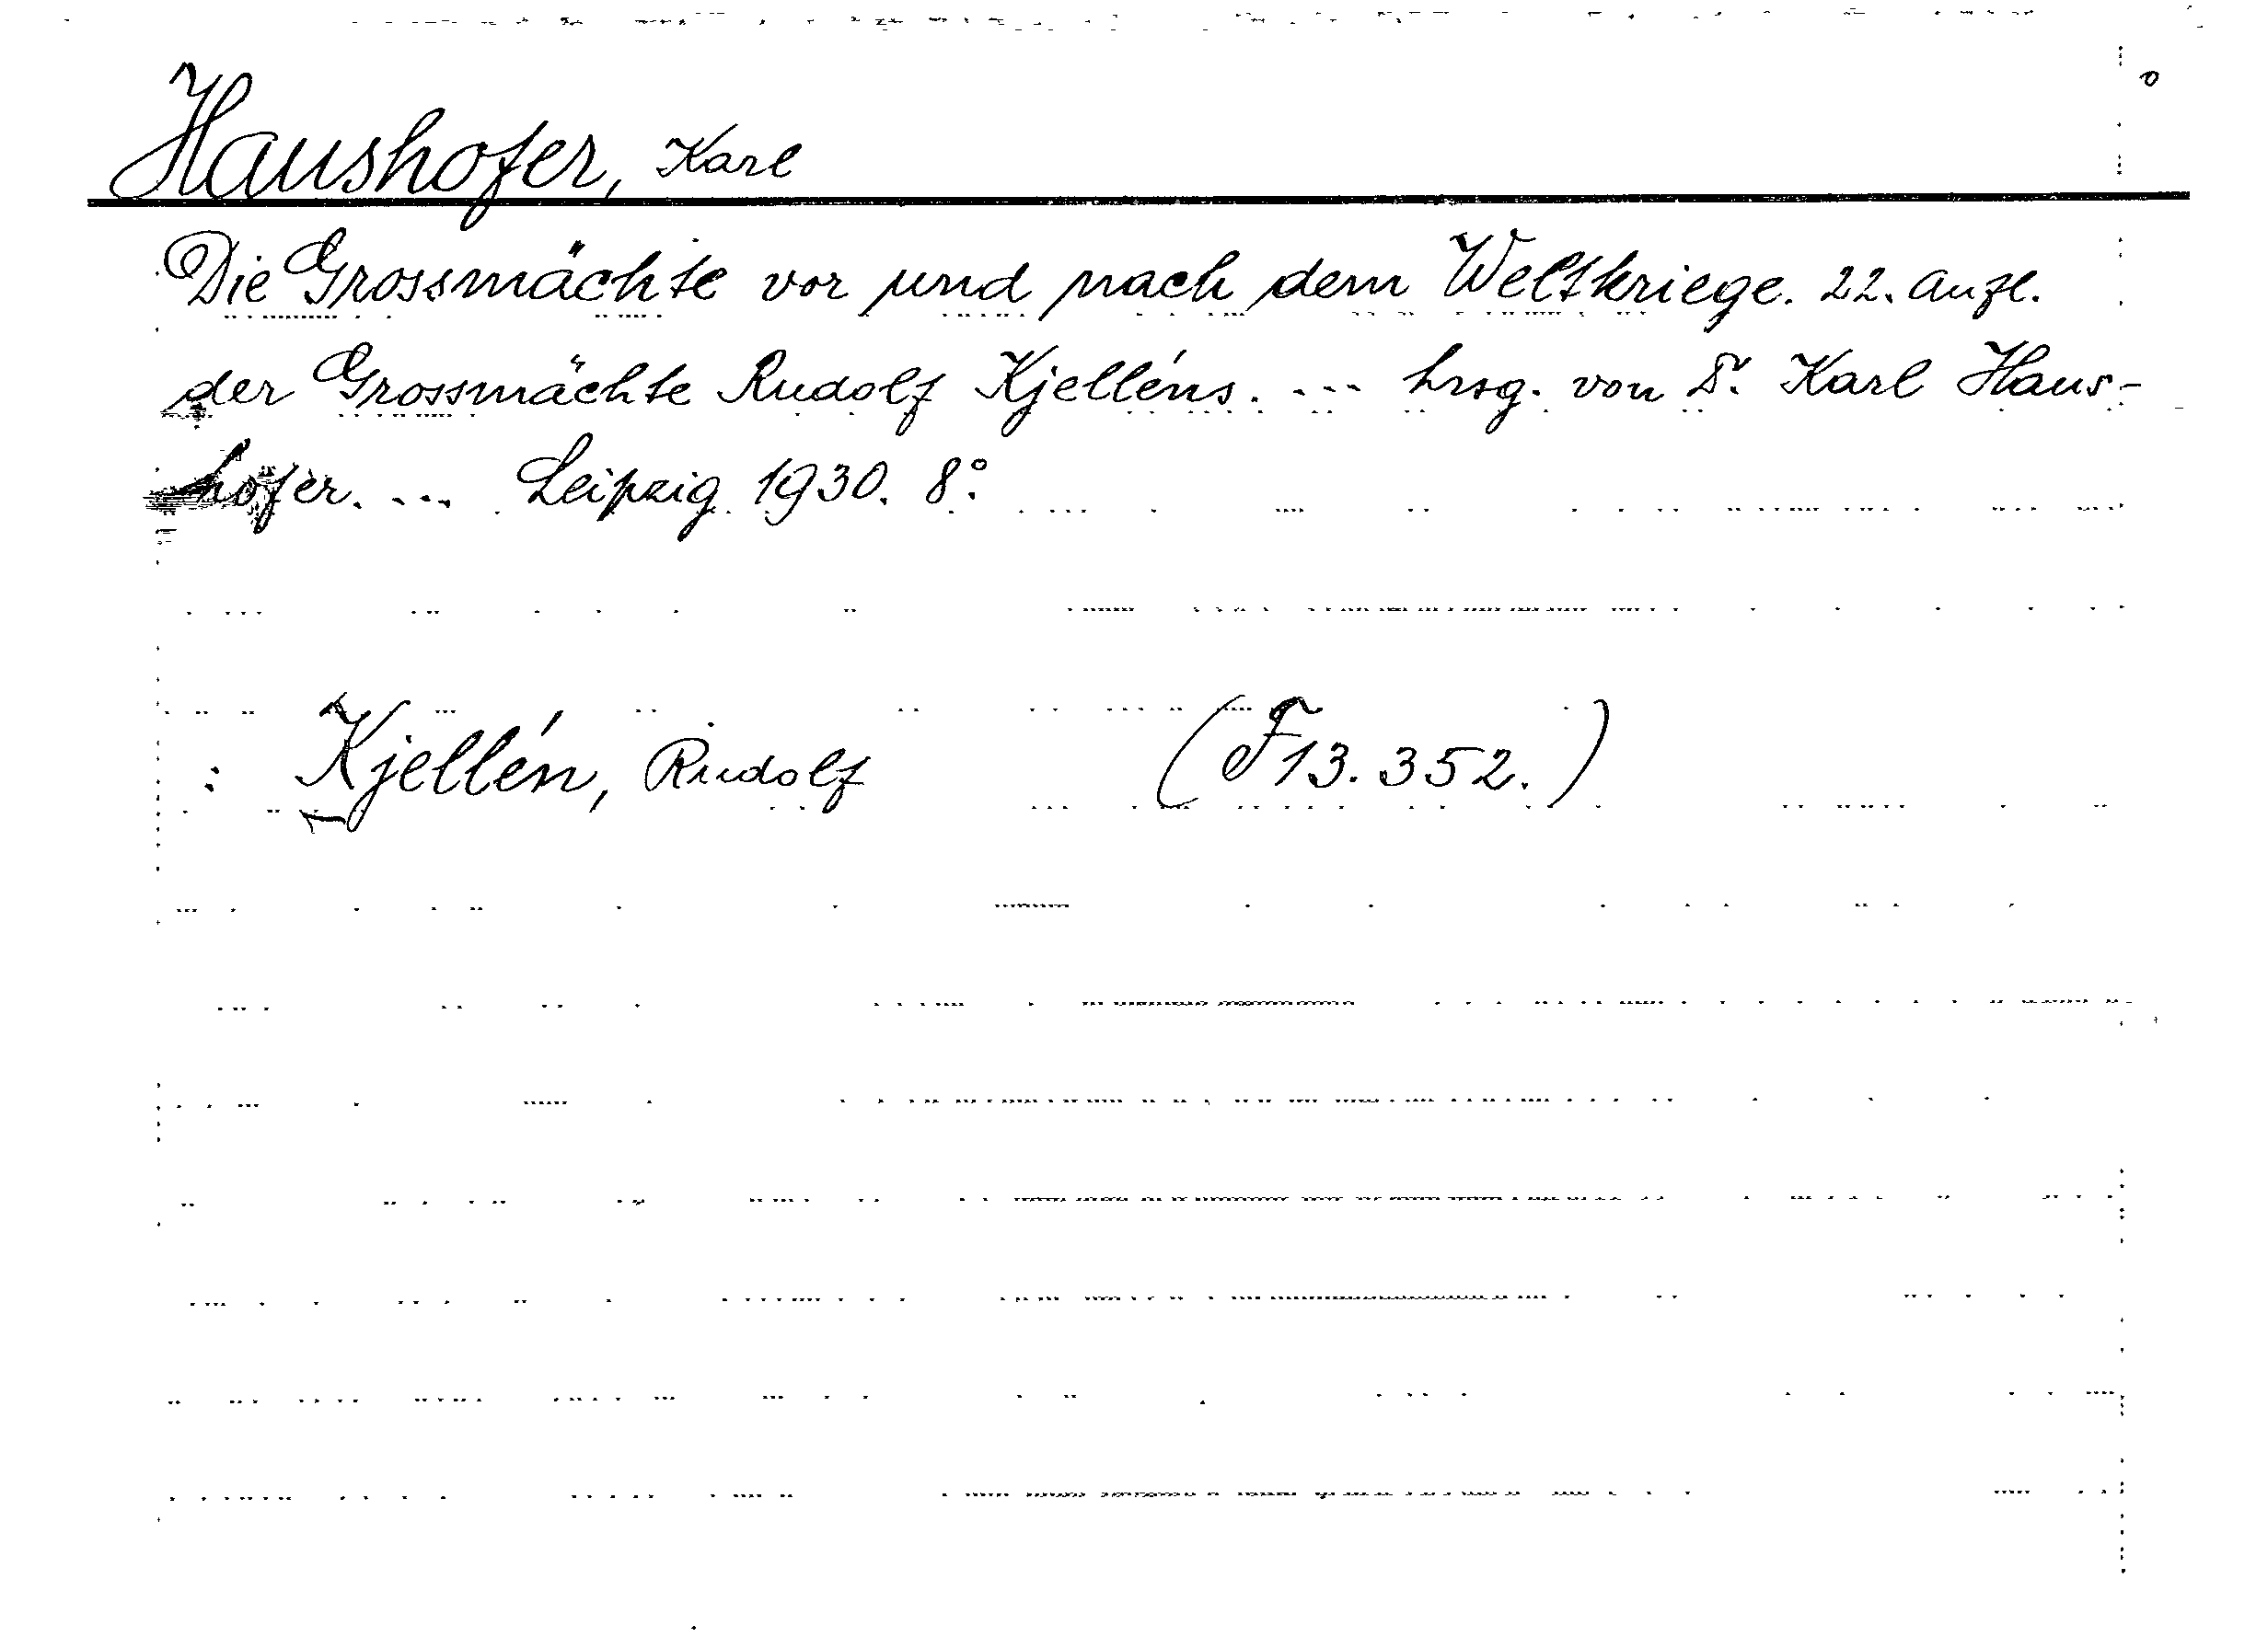 Haushofer, Karl
Die Grossmächte vor und nach dem Weltkriege. 22. Aufl.
der Grossmächte Rudolf Kjelléns. ... hrsg. von Dr. Karl Haus-
hofer. ... Leipzig 1930. 8°.
: Kjellén, Rudolf (F 13.352.)